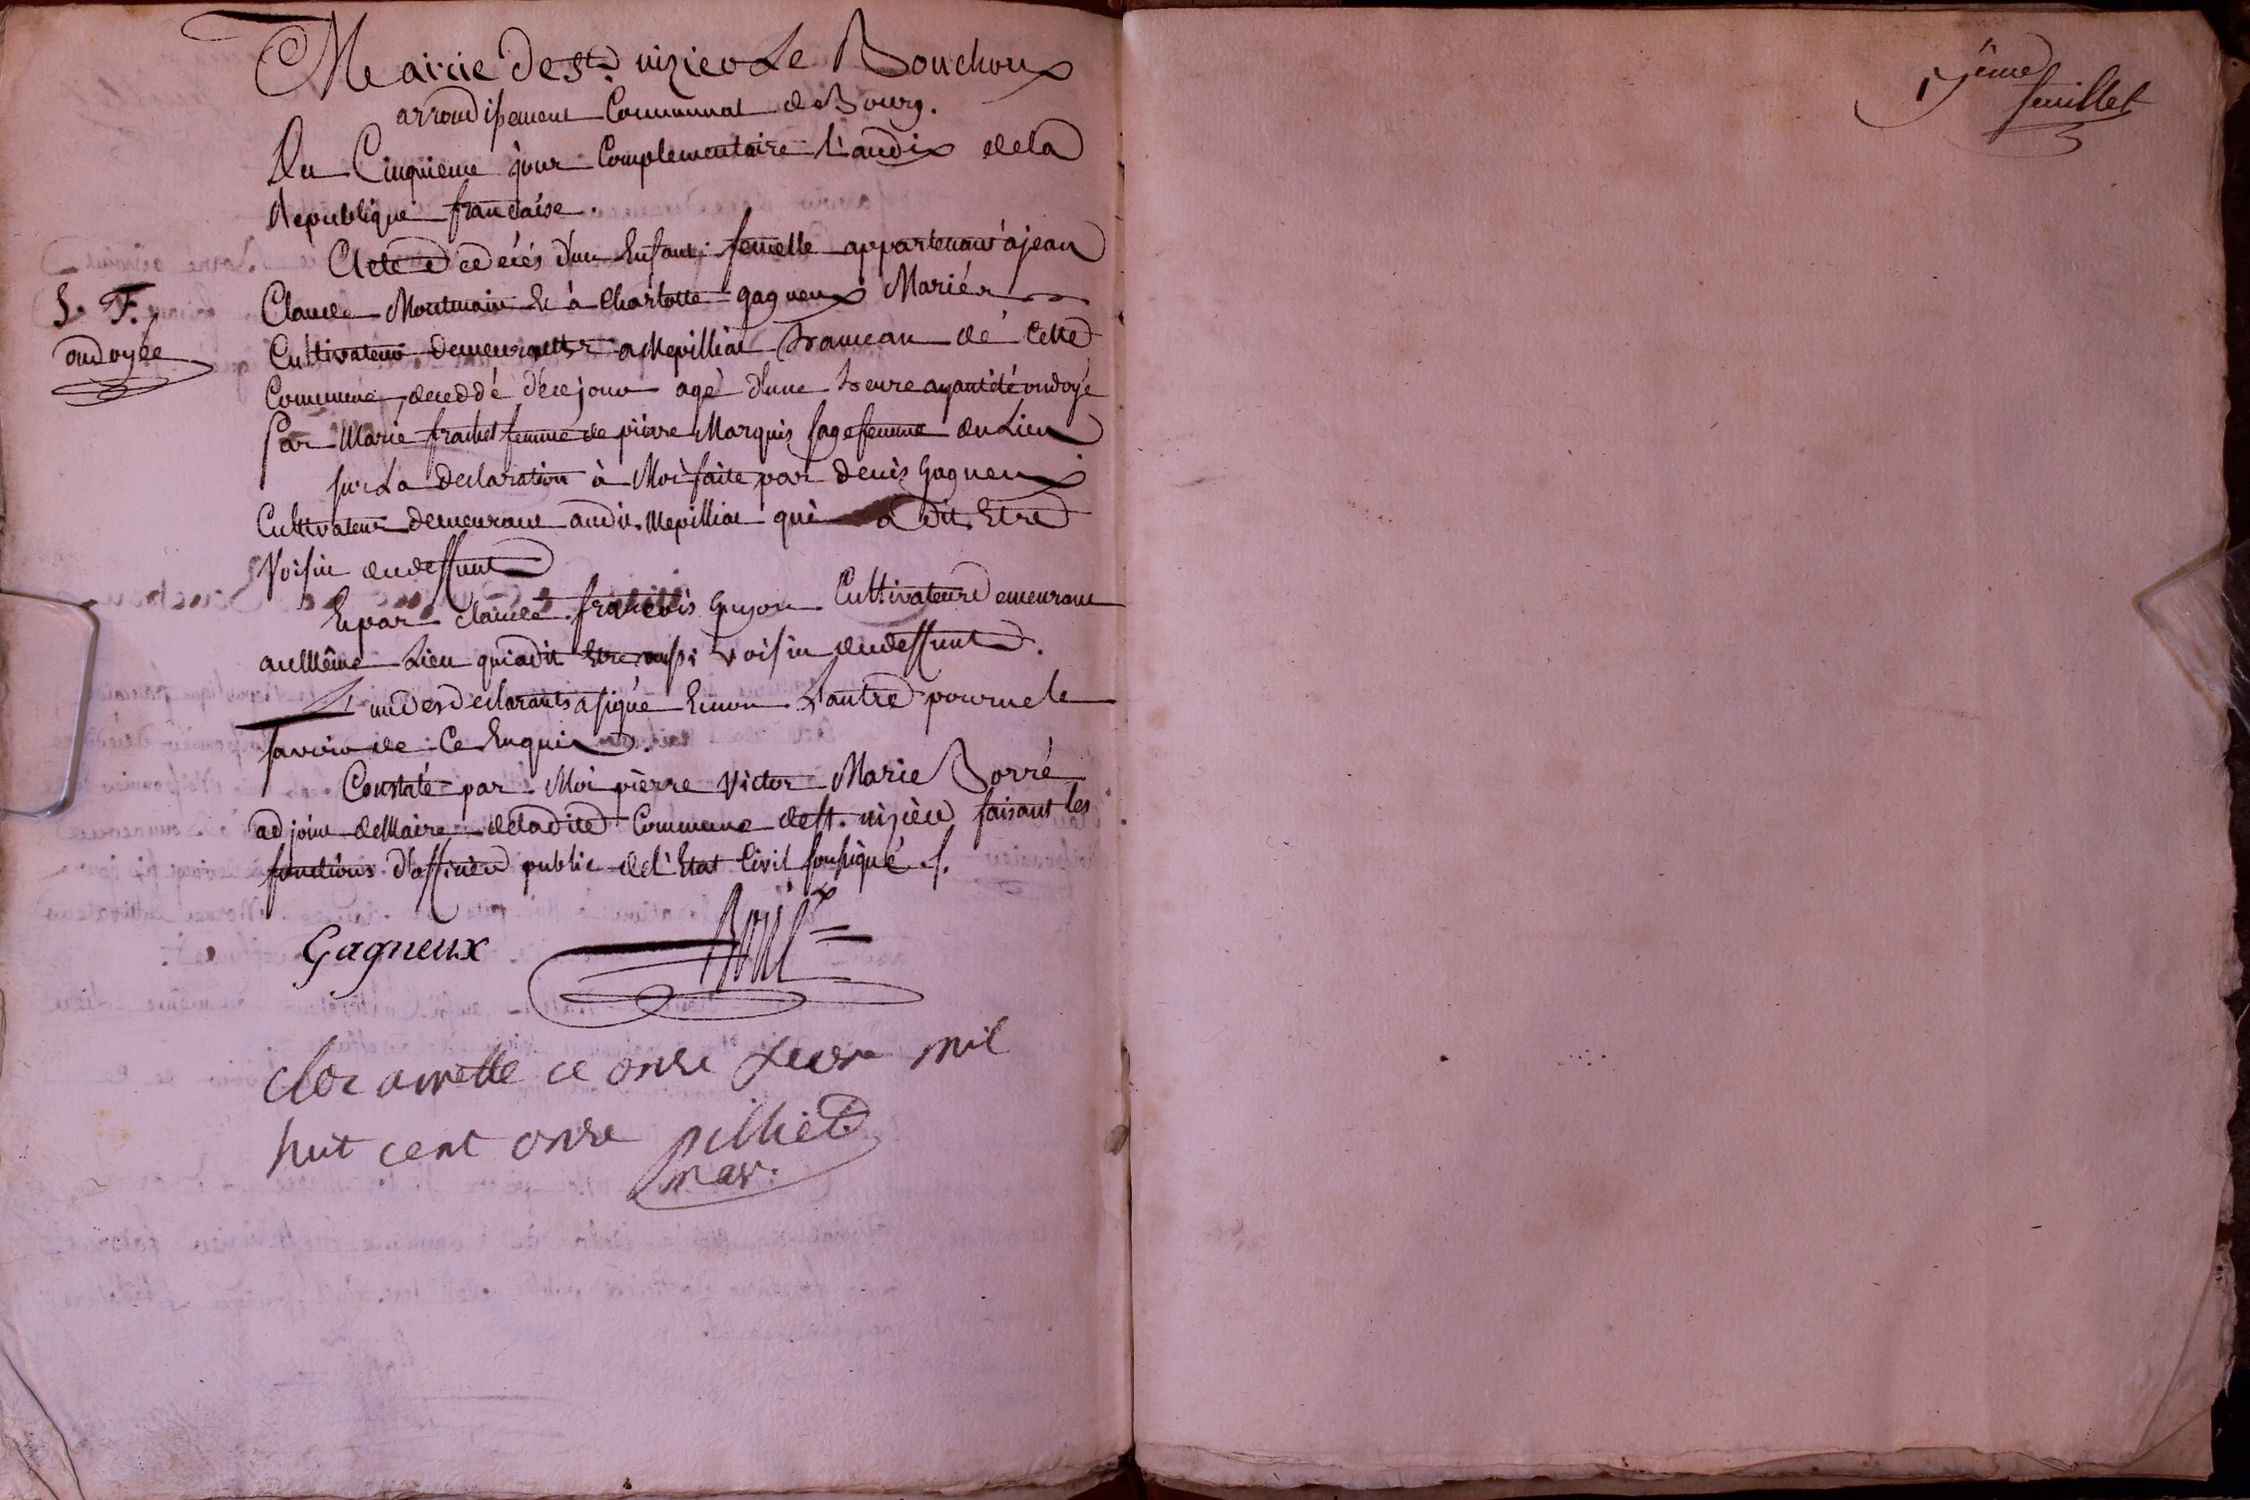 Mairie de st. nizier Le Bouchoux
arrondissement Communal de Bourg.
Du Cinquieme jour Complementaire l'an dix de la
Republique francaise.
Acte de décés d'un Enfant femelle appartenant à jean
Claude Montmain Et à Charlotte gagneux Mariés
Cultivateurs demeurants a Mepilliat hameau de cette
Commune, deceddé d'ce jour agé d'une heure ayant été ondoyé
Par Marie frachet femme de pierre Marquis sage femme du Lieu
sur La declaration à Moi faite par denis Gagneux
Cultivateur demeurant audit Mepilliat qui a dit Etre
Voisin du deffunt
Et par claude francois Guyon Cultivateur demeurant
au Même Lieu qui a dit Etre aussi voisin du deffunt.
L'un des declarants a signé Et non L'autre pour ne le
savoir de ce Enquis.
Constaté par Moi pierre Victor Marie Borré
adjoint de Maire de ladite Commune de st. nizier faisant les
fonctions d'officier public de l'Etat Civil soussigné ./.
S. F.
ondoyée
Gagneux Borré
clos arretté ce onze mil
huit cent onze pilliet
mar.
ieme
feuillet